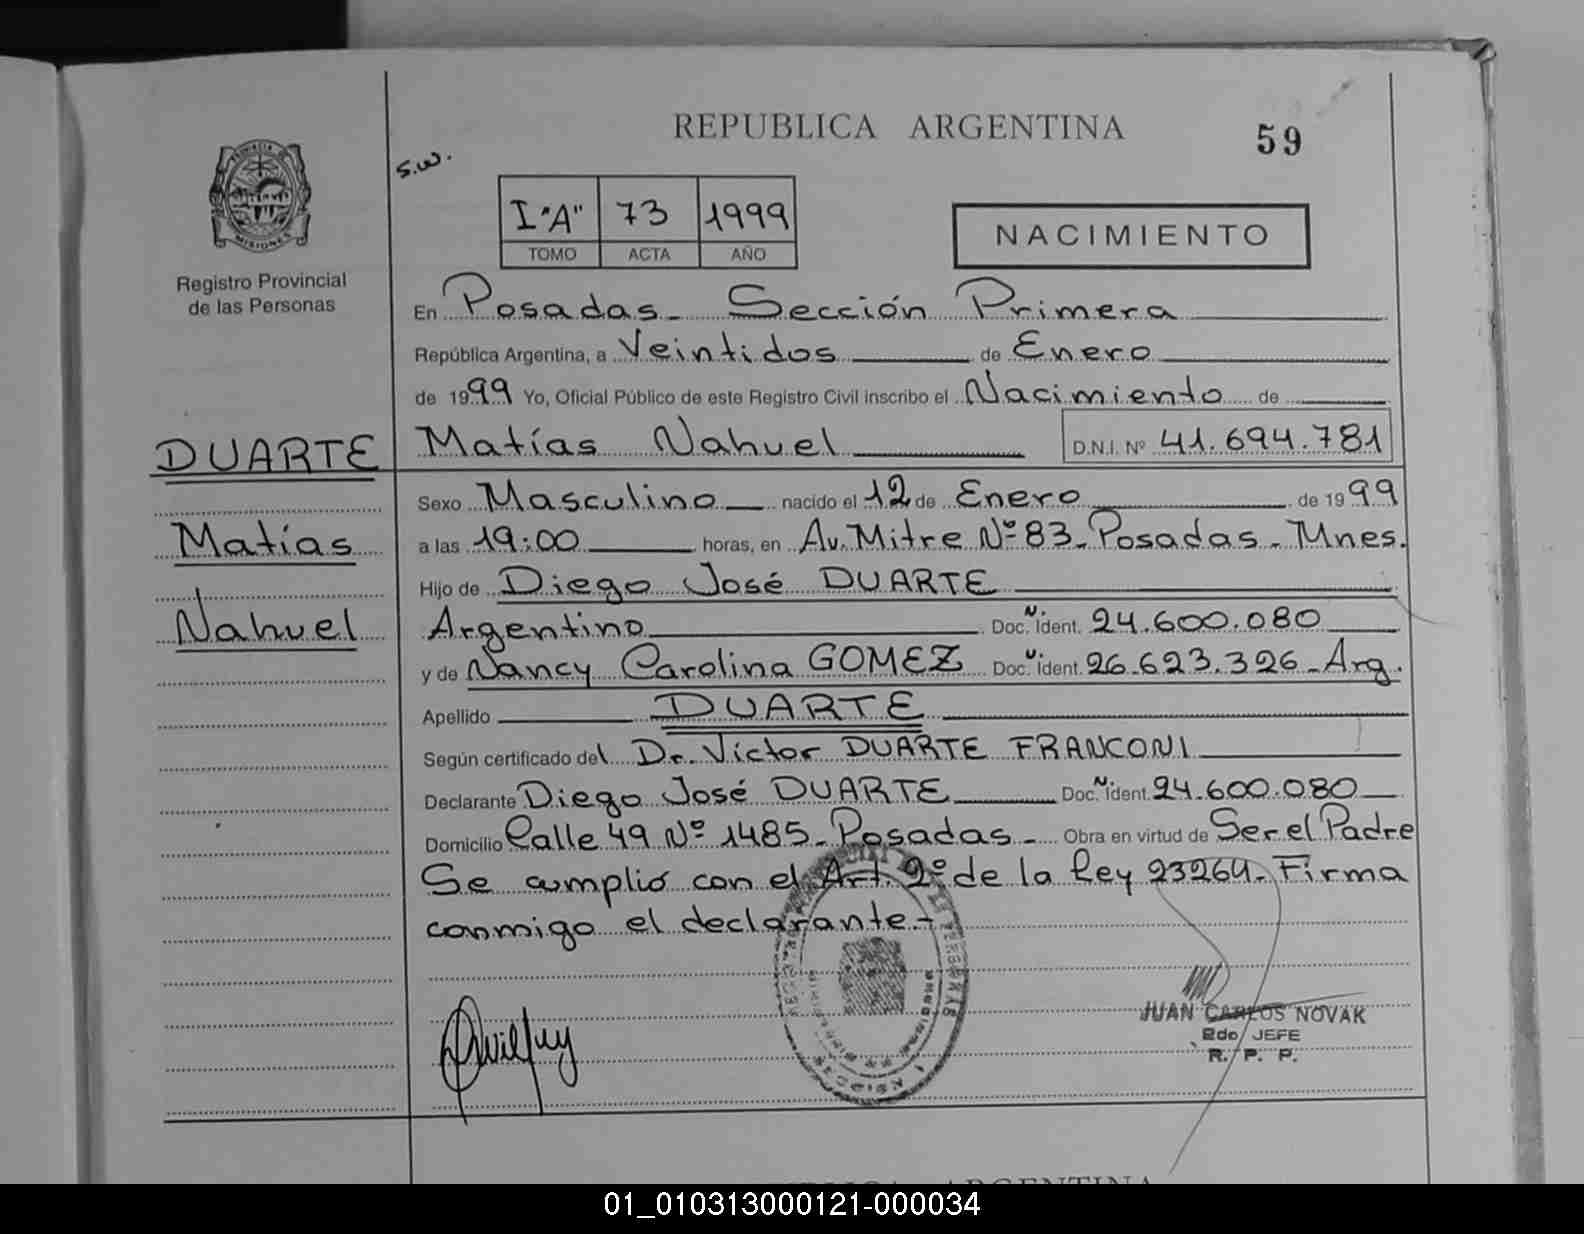 REPUBLICA ARGENTINA
59
s.w.
PROVINCIA DE
MISIONES
I "A" 73 1999
TOMO ACTA AÑO
NACIMIENTO
Registro Provincial
de las Personas
En Posadas - Sección Primera
República Argentina, a Veintidos de Enero
de 1999 Yo, Oficial Público de este Registro Civil inscribo el Nacimiento de
DUARTE
Matías Nahuel D.N.I. Nº 41.694.781
Sexo Masculino nacido el 12 de Enero de 1999
Matías
a las 19:00 horas, en Av. Mitre Nº 83 - Posadas - Mnes.
Hijo de Diego José DUARTE
Nahuel
Argentino Doc. N. Ident. 24.600.080
y de Nancy Carolina GOMEZ Doc. N. Ident. 26.623.326 - Arg.
Apellido DUARTE
Según certificado del Dr. Víctor DUARTE FRANCONI
Declarante Diego José DUARTE Doc. N. Ident. 24.600.080
Domicilio Calle 49 Nº 1485 - Posadas - Obra en virtud de Ser el Padre
Se cumplió con el Art. 2º de la Ley 23264 - Firma
conmigo el declarante -
JUAN CARLOS NOVAK
2do JEFE
R. P. P.
REPUBLICA ARGENTINA
01_010313000121-000034